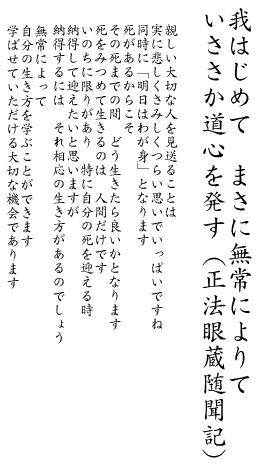 我はじめて　まさに無常によりて
いささか道心を発す（正法眼蔵随聞記）
親しい大切な人を見送ることは
実に悲しくさみしくつらい思いでいっぱいですね
同時に「明日はわが身」となります
死があるからこそ
その死までの間　どう生きたら良いかとなります
死をみつめて生きるのは　人間だけです
いのちに限りがあり　特に自分の死を迎える時
納得して迎えたいと思いますが
納得するには　それ相応の生き方があるのでしょう
無常によって
自分の生き方を学ぶことができます
学ばせていただける大切な機会であります